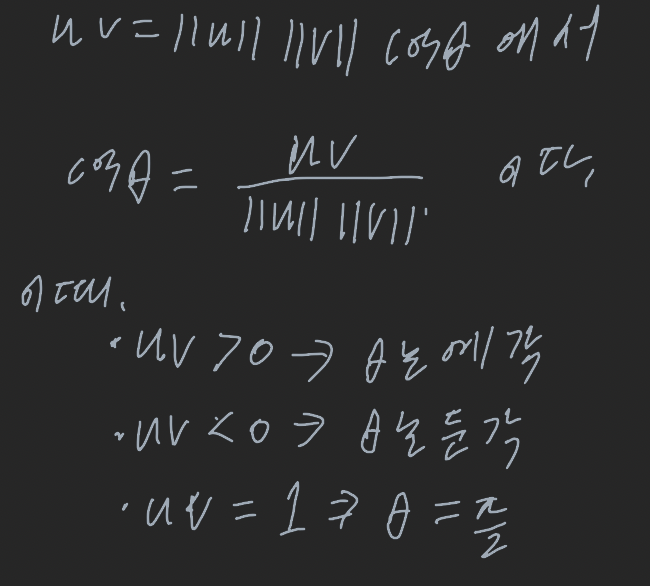 uv = ||u|| ||v|| cosθ 에서
cosθ = uv / ||u|| ||v||. 이다.
이때.
· uv > 0 → θ는 예각
· uv < 0 → θ는 둔각
· uv = 1 → θ = π/2